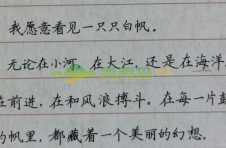 我愿意看见一只只白帆。
无论在小河,在大江,还是在海洋
在前进,在和风浪搏斗。在每一片
的帆里,都藏着一个美丽的幻想.